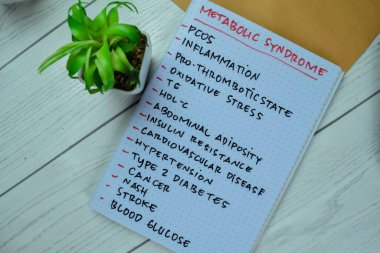 METABOLIC SYNDROME
- PCOS
- INFLAMMATION
- PRO-THROMBOTIC STATE
- OXIDATIVE STRESS
- TG
- HDL-C
- ABDOMINAL ADIPOSITY
- INSULIN RESISTANCE
- CARDIOVASCULAR DISEASE
- HYPERTENSION
- TYPE 2 DIABETES
- CANCER
- NASH
- STROKE
- BLOOD GLUCOSE